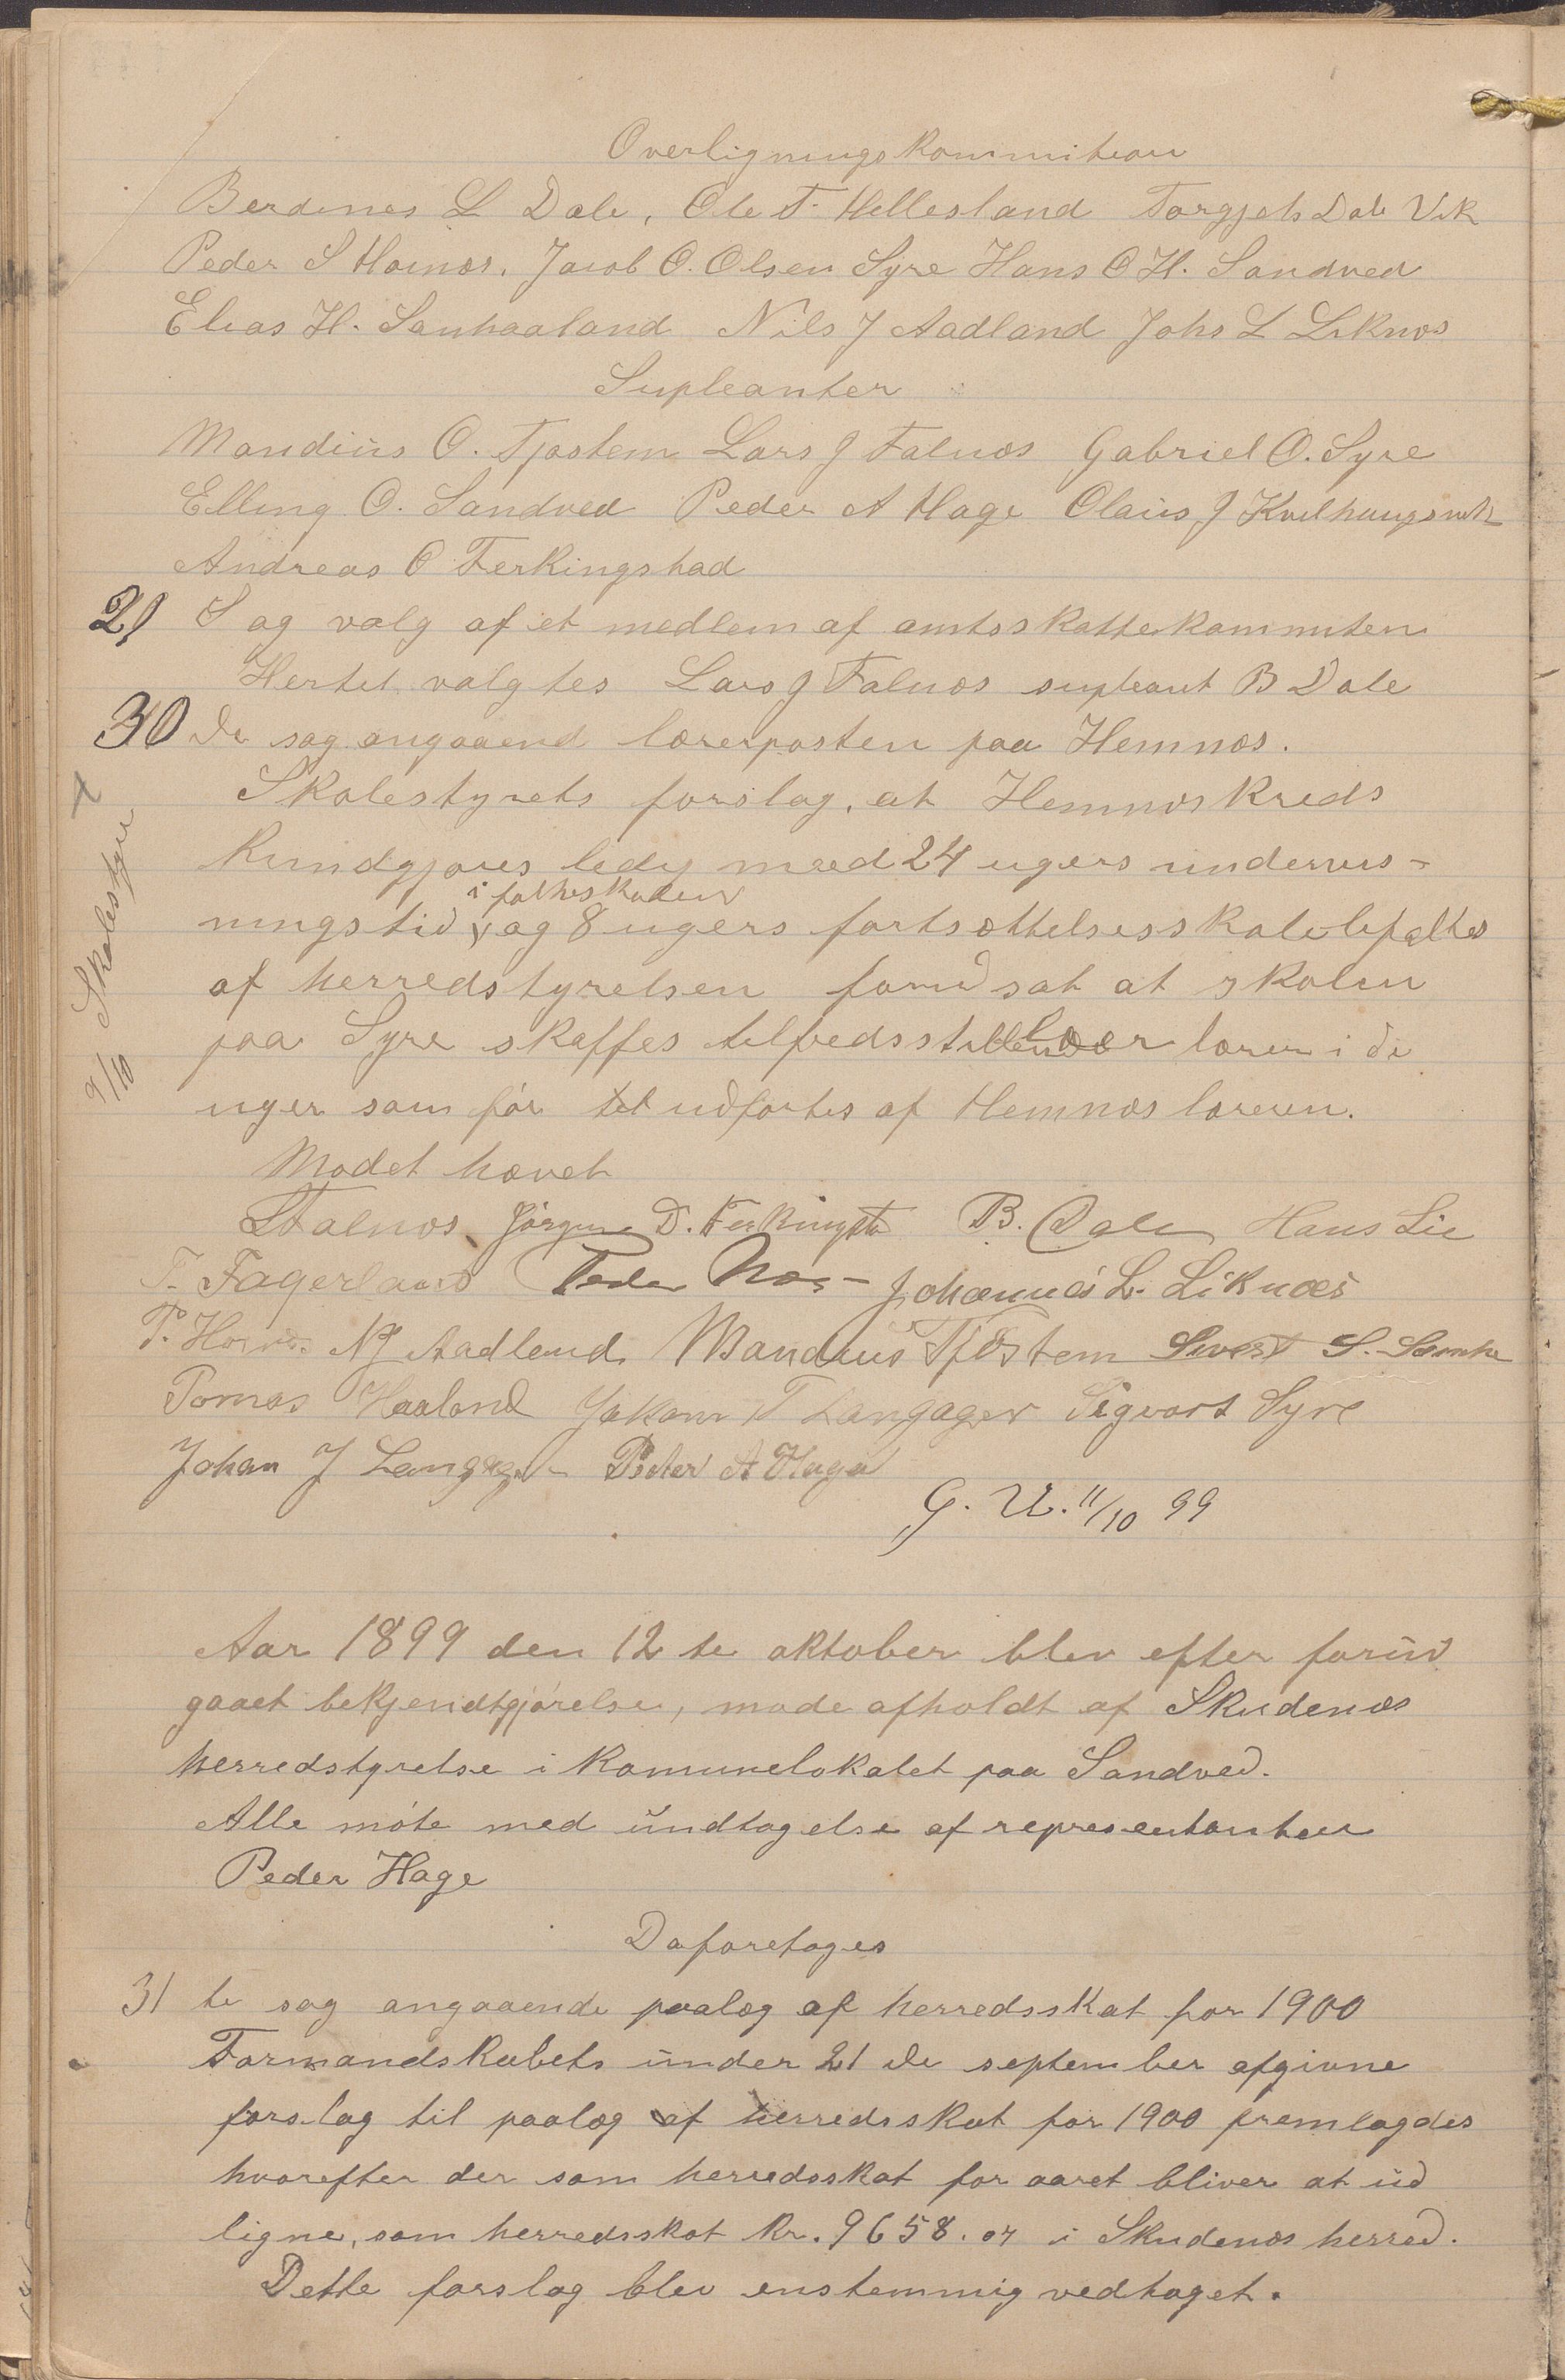 Overligningskommiteen
Berdines L Dale, Ole T. Hellesland Torgjels Dale Vik
Peder S Hornæs. Jacob O. Olsen Syre Hans O H. Sandved
Elias H. Sævhaaland Nils J Aadland Johs L Liknæs
Supleanter
Mandius O. Tjøstem Lars J Falnæs Gabriel O. Syre
Elling O. Sandved Peder A Hage Olaus J Kvilhaugsvik
Andreas O Ferkingstad
29 Sag valg af et medlem af amtsskattekommiten
Hertil valgtes Lars J Falnæs supleant B Dale
30 de sag angaaend lærerposten paa Hemnæs.
Skolestyrets forslag, at Hemnæs kreds
kundgjøres ledig med 24 ugers undervis-
i folkeskolen
ningstid og 8 ugers fortsættelsesskole
af herredstyrelsen forudsat at skolen
paa Syre skaffes tilfredsstillende lærer i de
uger som før udførtes af Hemnæs læreren.
9/10 Skolestyre
Mødet hævet
Falnæs Jørgen D. Ferkingsta B. Dale Hans Lie
T. Fagerland Peder Næs Johannes L. Liknæs
P. Hornæs N J Aadland Mandius Tjøstem Sivert S.
Tomas Haaland Jakom T Langager Sigvart Syre
Johan J Langager Peder A Hage
G. U. 11/10 99
Aar 1899 den 12te oktober blev efter forud
gaaet bekjendtgjørelse, møde afholdt af Skudenæs
herredstyrelse i Komunelokalet paa Sandved.
Alle møte med undtagelse af representanten
Peder Hage
Da foretoges
31 te sag angaaende paalæg af herredsskat for 1900
Formandskabets under 21 de september afgivne
forslag til paalæg af herredsskat for 1900 fremlagdes
hvorefter der som herredsskat for aaret bliver at ud
ligne, som herredsskat kr. 9658.04 i Skudenæs herred.
Dette forslag blev enstemmig vedtaget.